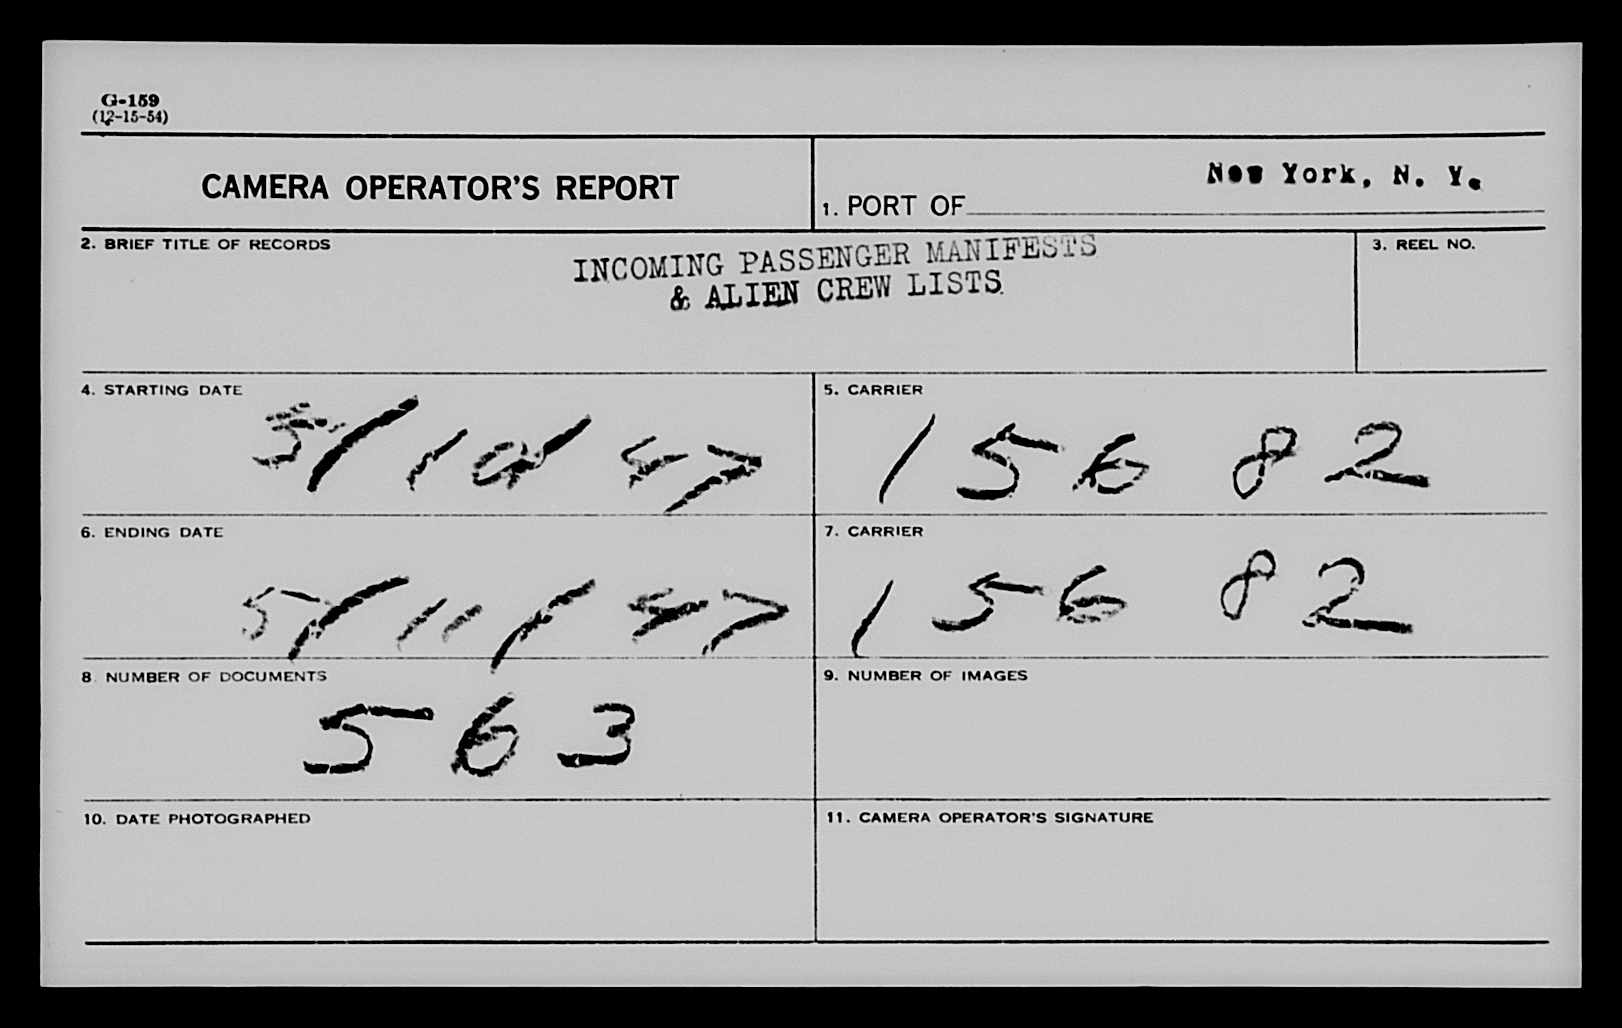 G-159
(12-15-54)
CAMERA OPERATOR'S REPORT
New York, N. Y.
1. PORT OF
2. BRIEF TITLE OF RECORDS
INCOMING PASSENGER MANIFESTS
& ALIEN CREW LISTS.
3. REEL NO.
4. STARTING DATE
5/10/47
5. CARRIER
15682
6. ENDING DATE
5/11/47
7. CARRIER
15682
8. NUMBER OF DOCUMENTS
563
9. NUMBER OF IMAGES
10. DATE PHOTOGRAPHED
11. CAMERA OPERATOR'S SIGNATURE